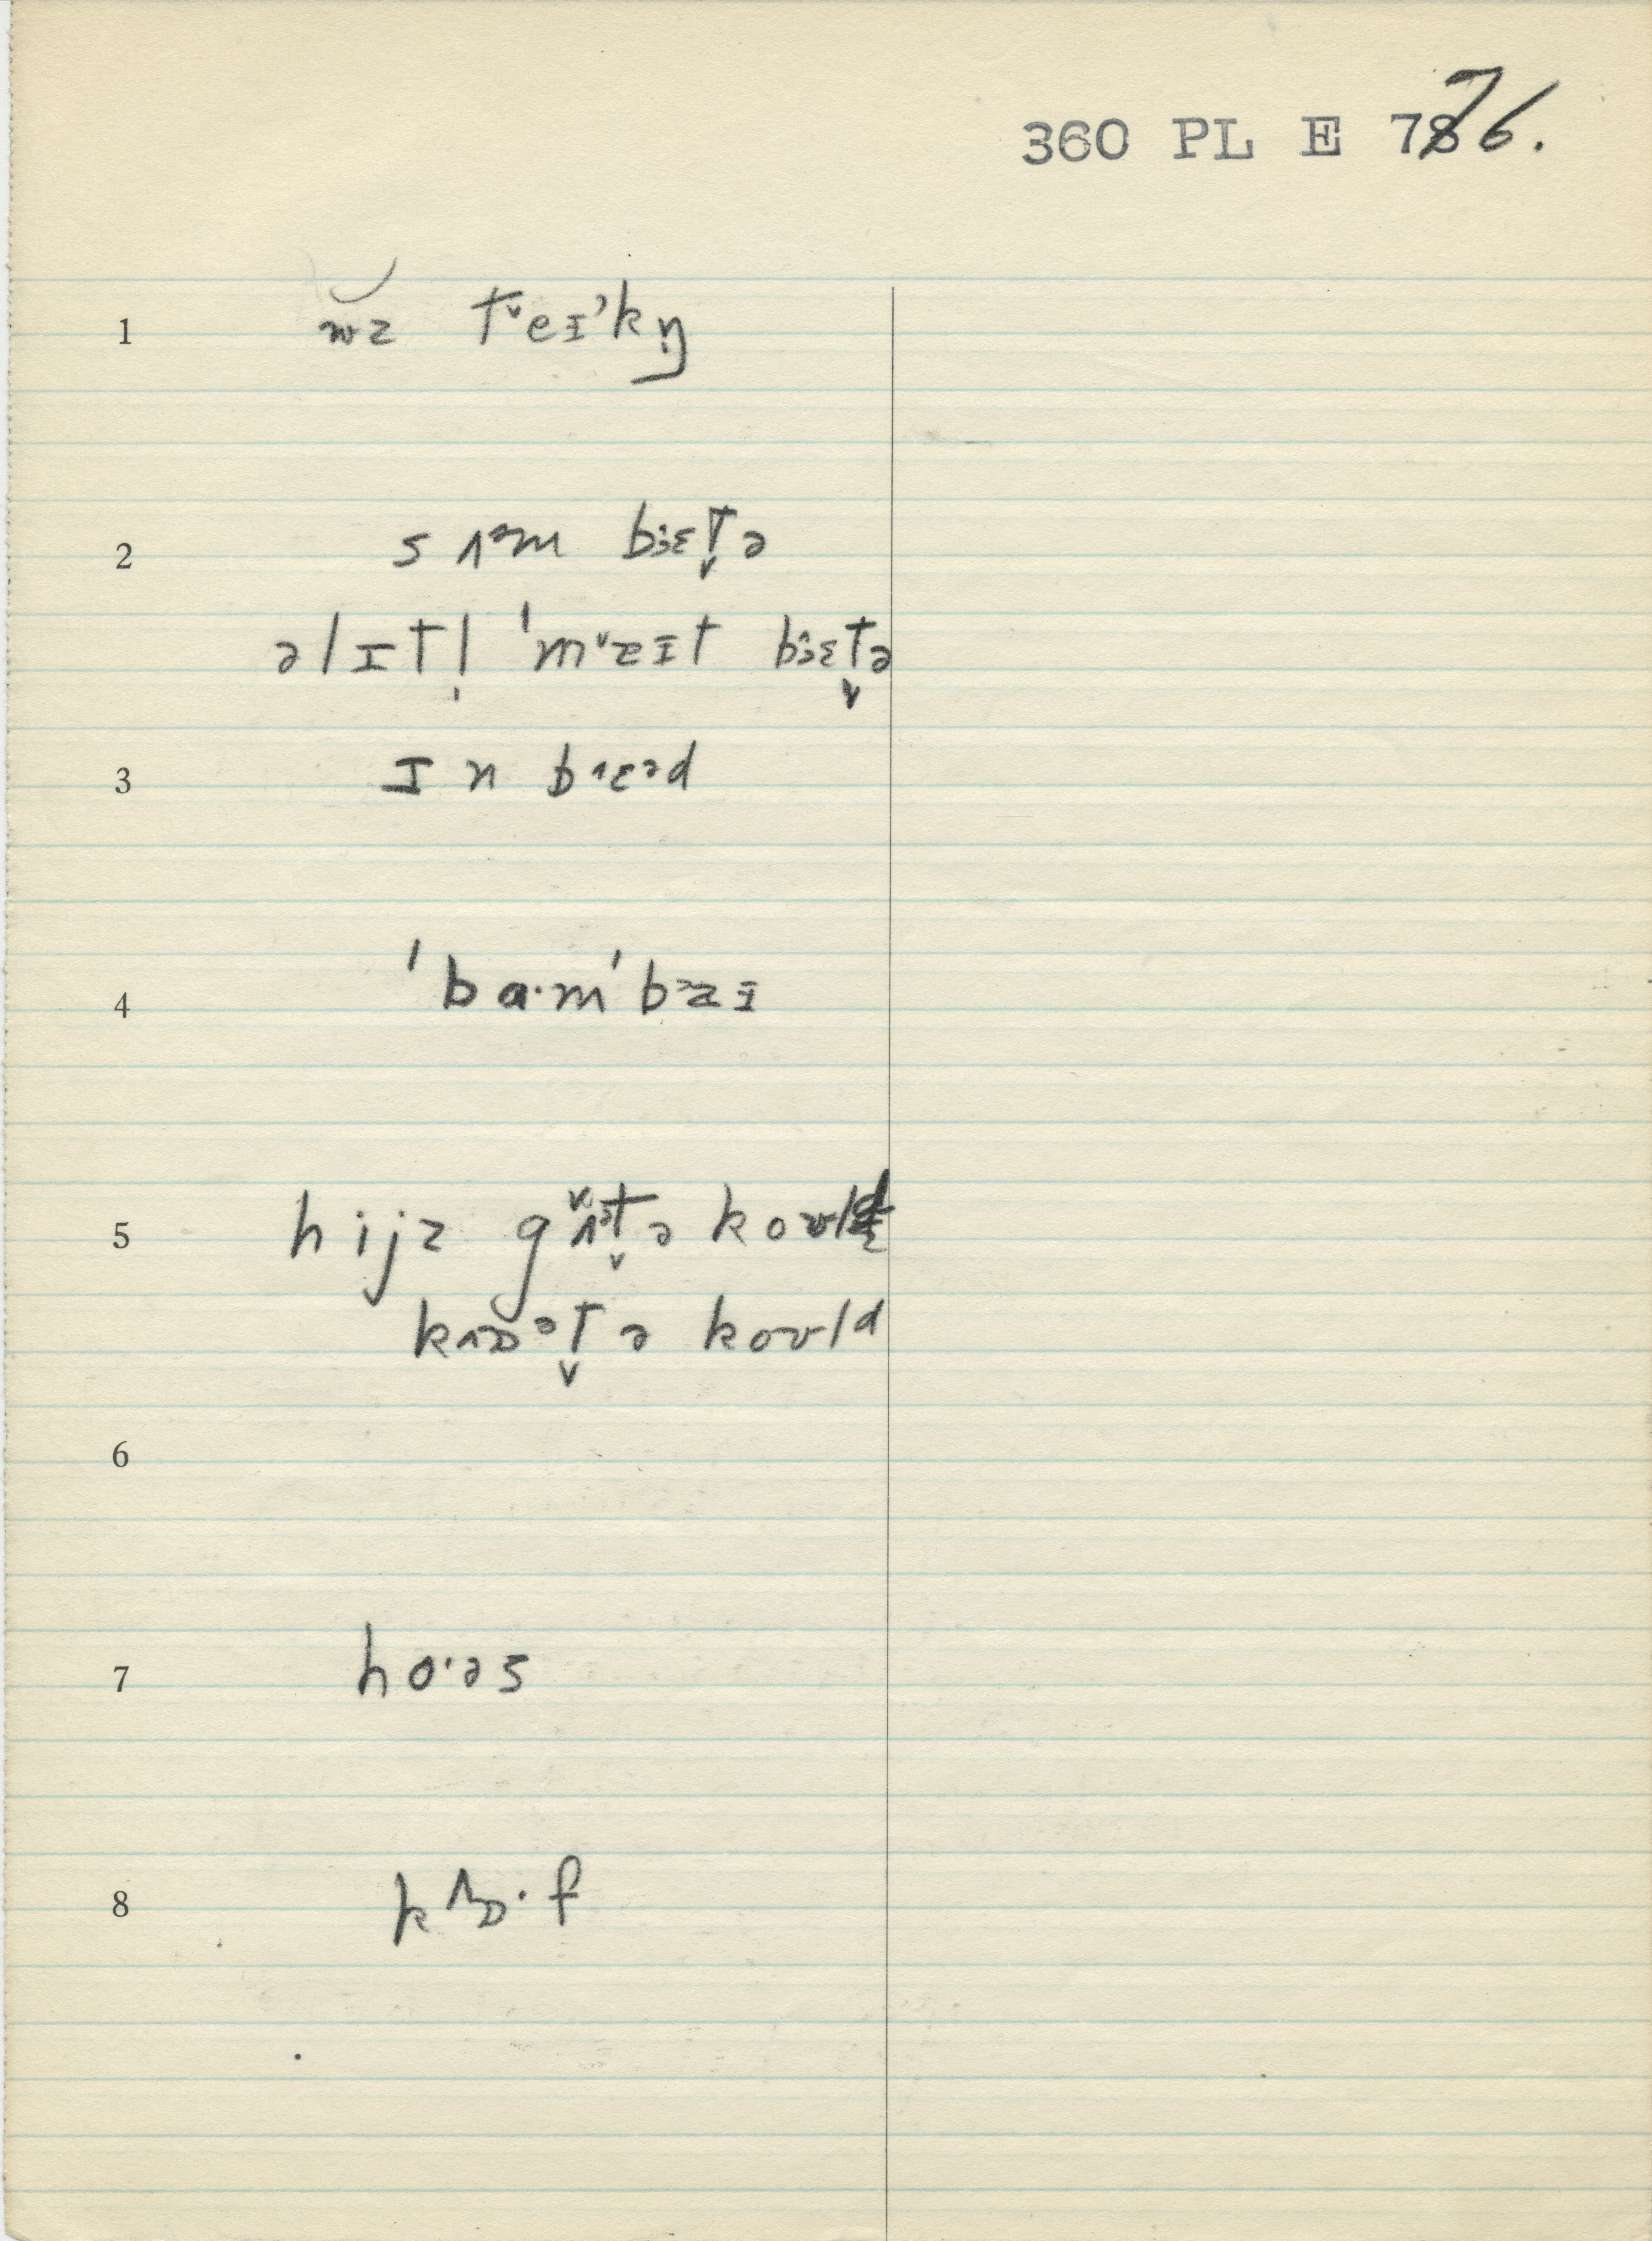 360 PL E 776.
1 wz tᵛeɪ'kŋ̩
2 s ʌᵊm bɜɛt̬ə
əlɪtl̩ 'mᵛzɪt bɜɛt̬ə
3 ɪn bɪɛᵊd
4 'ba·m'bᵊzɪ
5 hijz gʌᵊt̬ə koʊld
kʌɒᵊt̬ə koʊld
6
7 ho·əs
8 kʌɒ·f